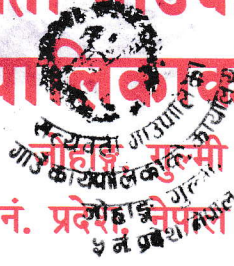 पालिका
जोहाङ्ग, गुल्मी
नं. प्रदेश, नेपाल
सत्यवती गाउँपालिका
गाउँ कार्यपालिकाको कार्यालय
जोहाङ्ग गुल्मी
५ नं. प्रदेश, नेपाल